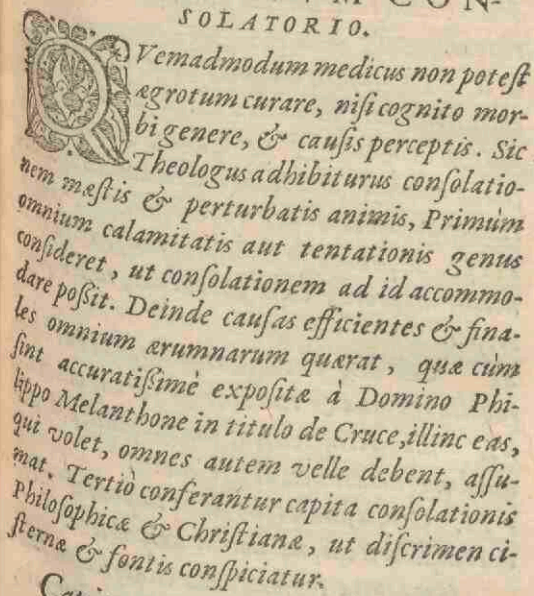 M CON-
SOLATORIO.
QVemadmodum medicus non poteſt
ægrotum curare, niſi cognito mor-
bi genere, & cauſis perceptis. Sic
Theologus adhibiturus conſolatio-
nem mæſtis & perturbatis animis, Primùm
omnium calamitatis aut tentationis genus
conſideret, ut conſolationem ad id accommo-
dare poſsit. Deinde cauſas efficientes & fina-
les omnium ærumnarum quærat, quæ cùm
ſint accuratiſsimè expoſitæ à Domino Phi-
lippo Melanthone in titulo de Cruce, illinc eas,
qui volet, omnes autem velle debent, aſſu-
mat. Tertiò conferantur capita conſolationis
Philoſophicæ & Chriſtianæ, ut diſcrimen ci-
ſternæ & fontis conſpiciatur.